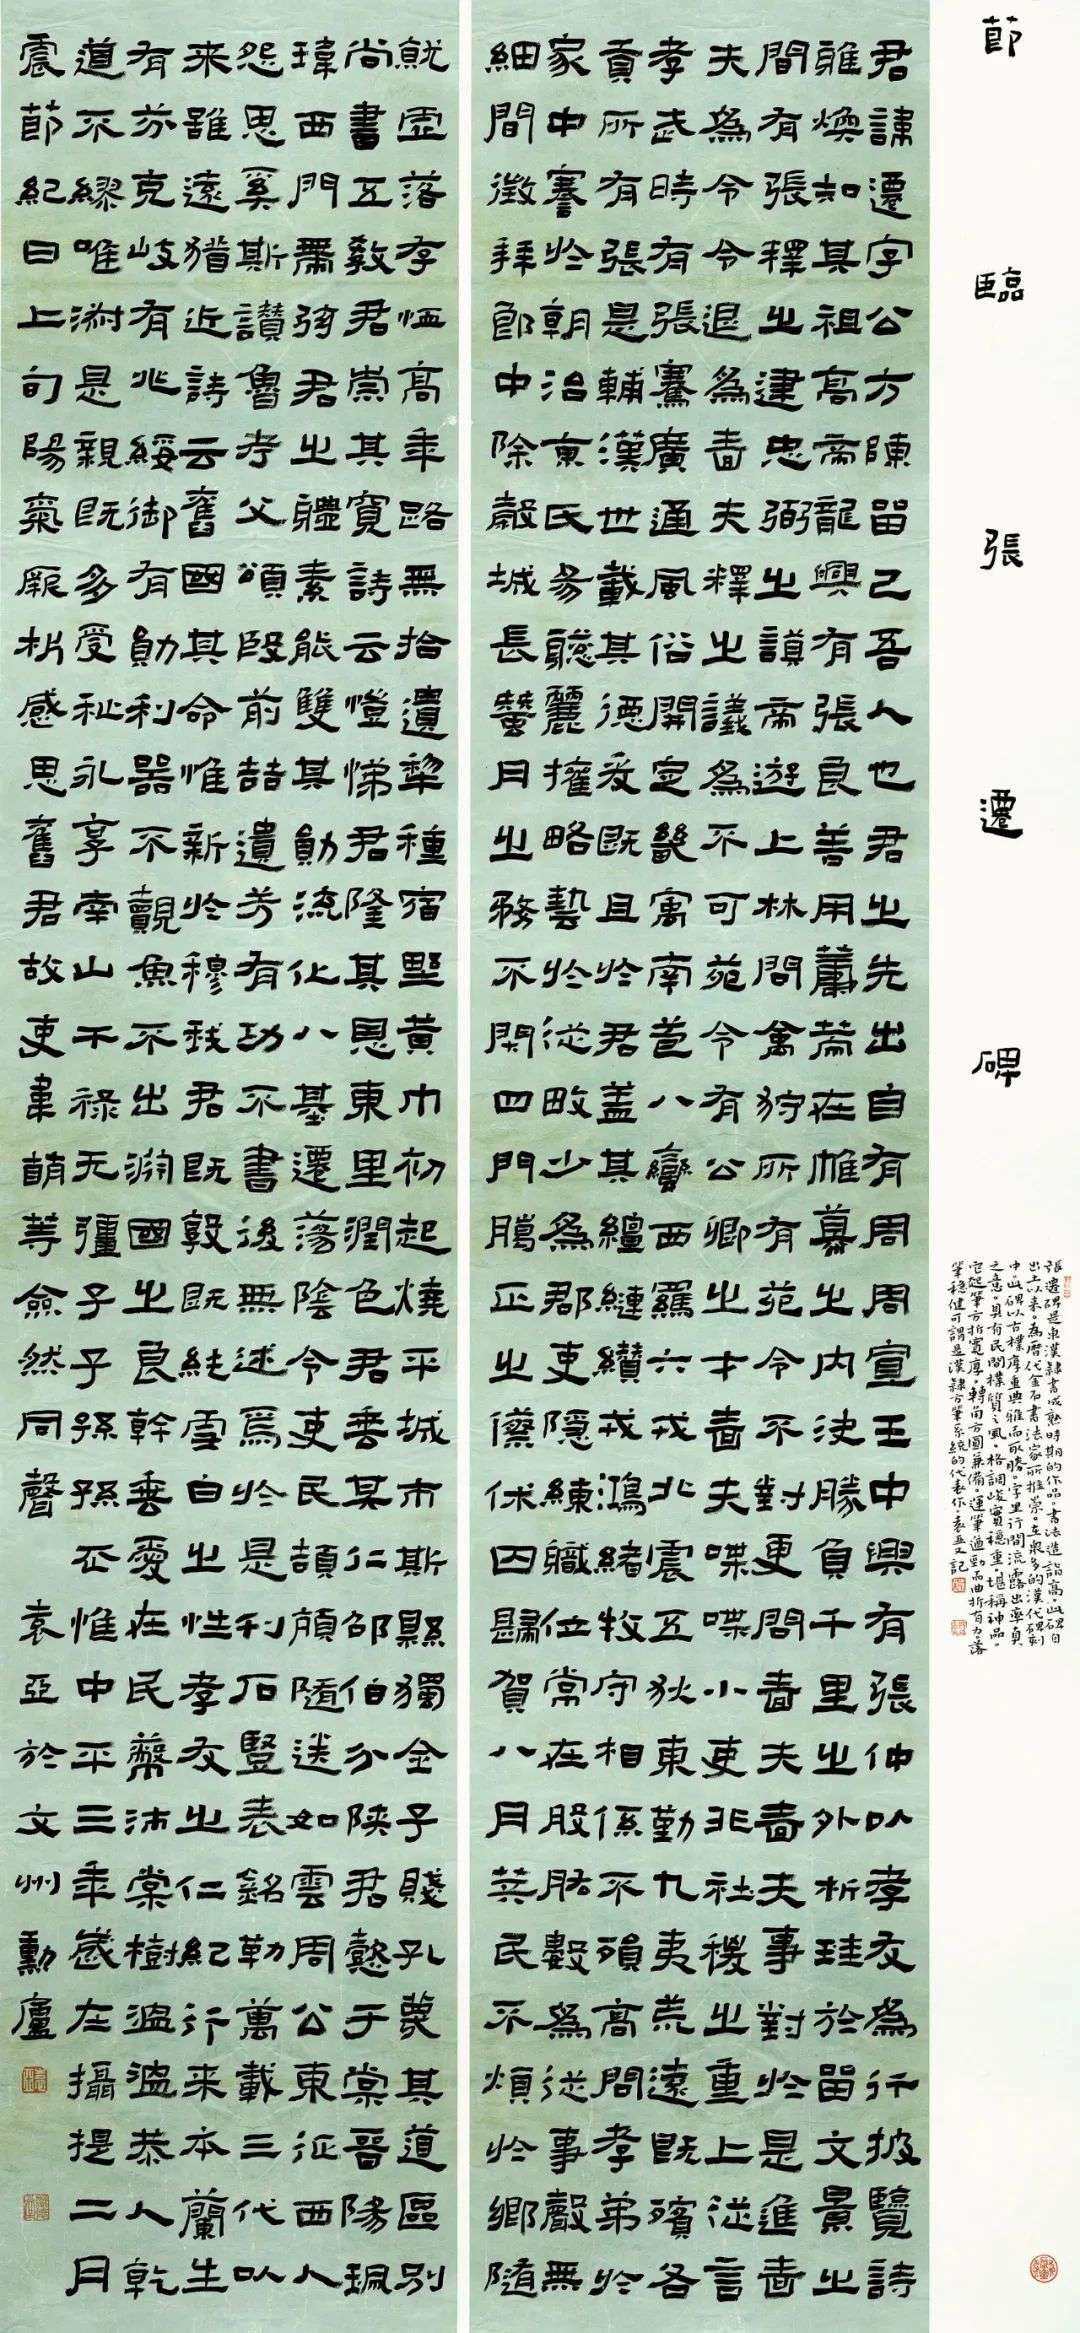 節臨張遷碑
張遷碑是東漢隸書成熟時期的作品。書法造詣高。此碑自
出土以來。為歷代金石書法家所推崇。在眾多的漢代碑刻
中。此碑以古樸厚重典雅而取勝。字里行間流露出率真
之意。具有民間樸質之風。格調峻實穩重。堪稱神品。
它起筆方折寬厚。轉角方圓兼備。運筆遒勁而曲折有力。落
筆穩健可謂是漢隸方筆系統的代表作。袁亞文記
君諱遷字公方陳留己吾人也君之先出自有周周宣王中興有張仲以孝友為行披覽詩
雅煥知其祖高帝龍興有張良善用籌策在帷幕之內決勝負千里之外析珪於留文景之
間有張釋之建忠弼之謨帝遊上林問禽狩所有苑令不對更問嗇夫嗇夫事對於是進嗇
夫為令令退為嗇夫釋之議為不可苑令有公卿之才嗇夫喋喋小吏非社稷之重上從言
孝武時有張騫廣通風俗開定畿寓南苞八蠻西羈六戎北震五狄東勤九夷荒遠既殯各
貢所有張是輔漢世載其德爰既且於君蓋其纏縺纘戎鴻緒牧守相係不殞高問孝弟於
家中謇於朝治京氏易聰麗權略藝於從畋少為郡吏隱練職位常在股肱數為從事聲無
細間徵拜郎中除穀城長蠶月之務不閉四門臘正之僚休囚歸賀八月筭民不煩於鄉隨
就虛落存恤高年路無拾遺犁種宿野黃巾初起燒平城市斯縣獨全子賤孔蔑其道區別
尚書五教君崇其寬詩云愷悌君隆其恩東里潤色君垂其仁邵伯分陝君懿于棠晉陽珮
瑋西門帶弦君之體素能雙其勛流化八基遷蕩陰令吏民頡頏隨送如雲周公東征西人
怨思奚斯讚魯考父頌殷前喆遺芳有功不書後無述焉於是刊石豎表銘勒萬載三代以
来雖遠猶近詩云舊國其命惟新於穆我君既敦既純雪白之性孝友之仁紀行来本蘭生
有芬克岐有兆綏御有勛利器不覿魚不出淵國之良幹垂愛在民蔽沛棠樹溫溫恭人乾
道不繆唯淑是親既多受祉永享南山干祿无疆子子孫孫丕惟中平三年歲在攝提二月
震節紀日上旬陽氣厥析感思舊君故吏韋萌等僉然同聲 袁亞於文州勳廬